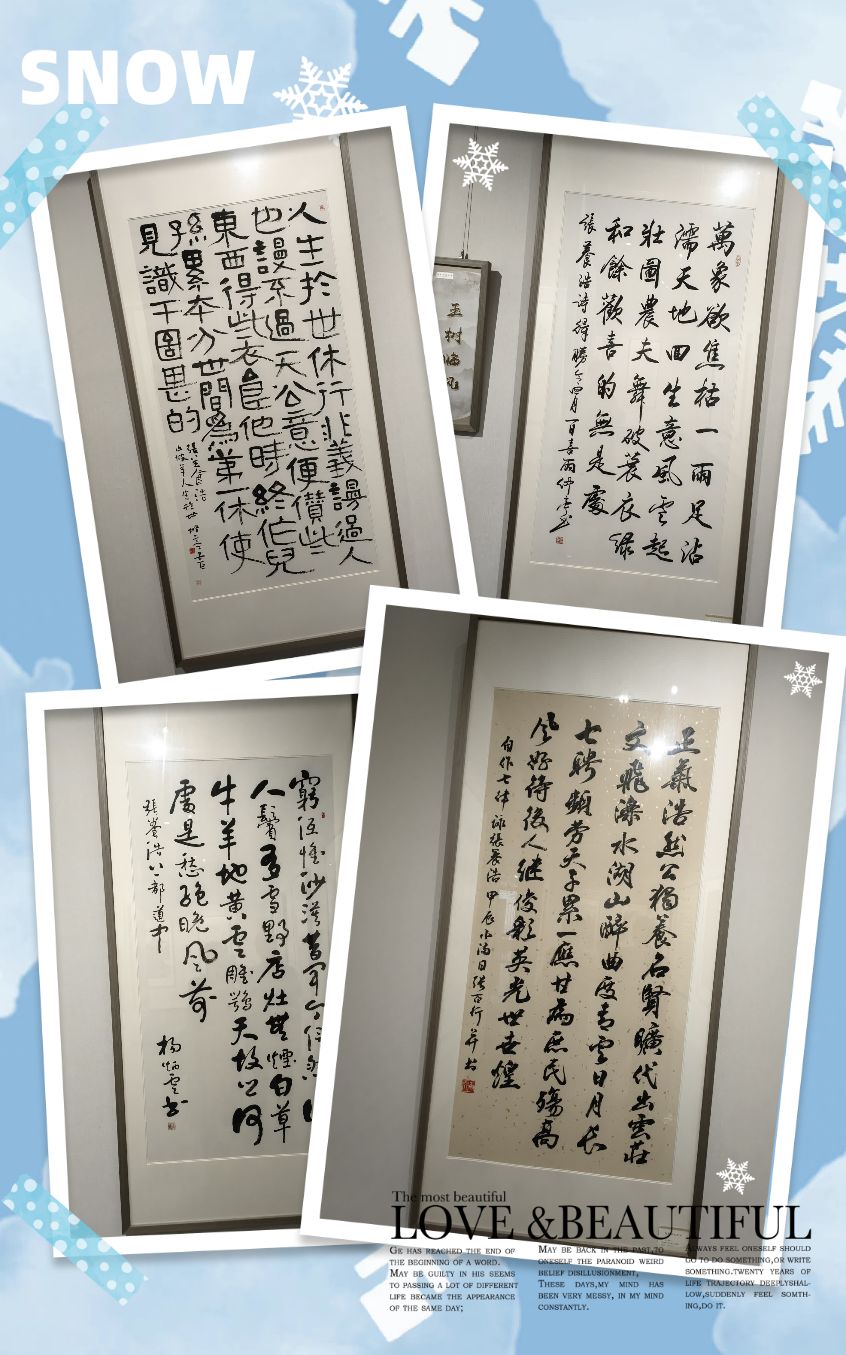 SNOW
人生於世休行非義謾過人
也謾不過天公意便儹些
東西得些衣食他時終作兒
孫累本分世間為第一休使
見識干圖甚的
張養浩
山坡羊人生於世
玉树临风
萬象欲焦枯一雨足沾
濡天地回生意風雲起
壯圖農夫舞破蓑衣綠
和餘歡喜的無是處
張養浩詩得勝令四月一日喜雨仲亭書
窮徑惟沙漠昔聞今信然
人鬢有雪野店灶無煙白草
牛羊地黃雲鵰鶚天故人何
處是愁絕晚風前
張養浩上都道中
楊炳雲書
正氣浩然公獨養名賢曠代出雲莊
文飛濼水湖山醉曲度青雲日月長
七聘頻勞天子累一應甘為庶民殤高
風好待後人繼俊彩英光世世煌
自作七律詠張養浩甲辰小滿日張百行并書
The most beautiful
LOVE &BEAUTIFUL
GE HAS REACHED THE END OF
THE BEGINNING OF A WORD.
MAY BE GUILTY IN HIS SEEMS
TO PASSING A LOT OF DIFFERENT
LIFE BECAME THE APPEARANCE
OF THE SAME DAY;
MAY BE BACK IN THE PAST,TO
ONESELF THE PARANOID WEIRD
BELIEF DISILLUSIONMENT,
THESE DAYS,MY MIND HAS
BEEN VERY MESSY, IN MY MIND
CONSTANTLY.
ALWAYS FEEL ONESELF SHOULD
GO TO DO SOMETHING,OR WRITE
SOMETHING.TWENTY YEARS OF
LIFE TRAJECTORY DEEPLYSHAL-
LOW,SUDDENLY FEEL SOMTH-
ING,DO IT.